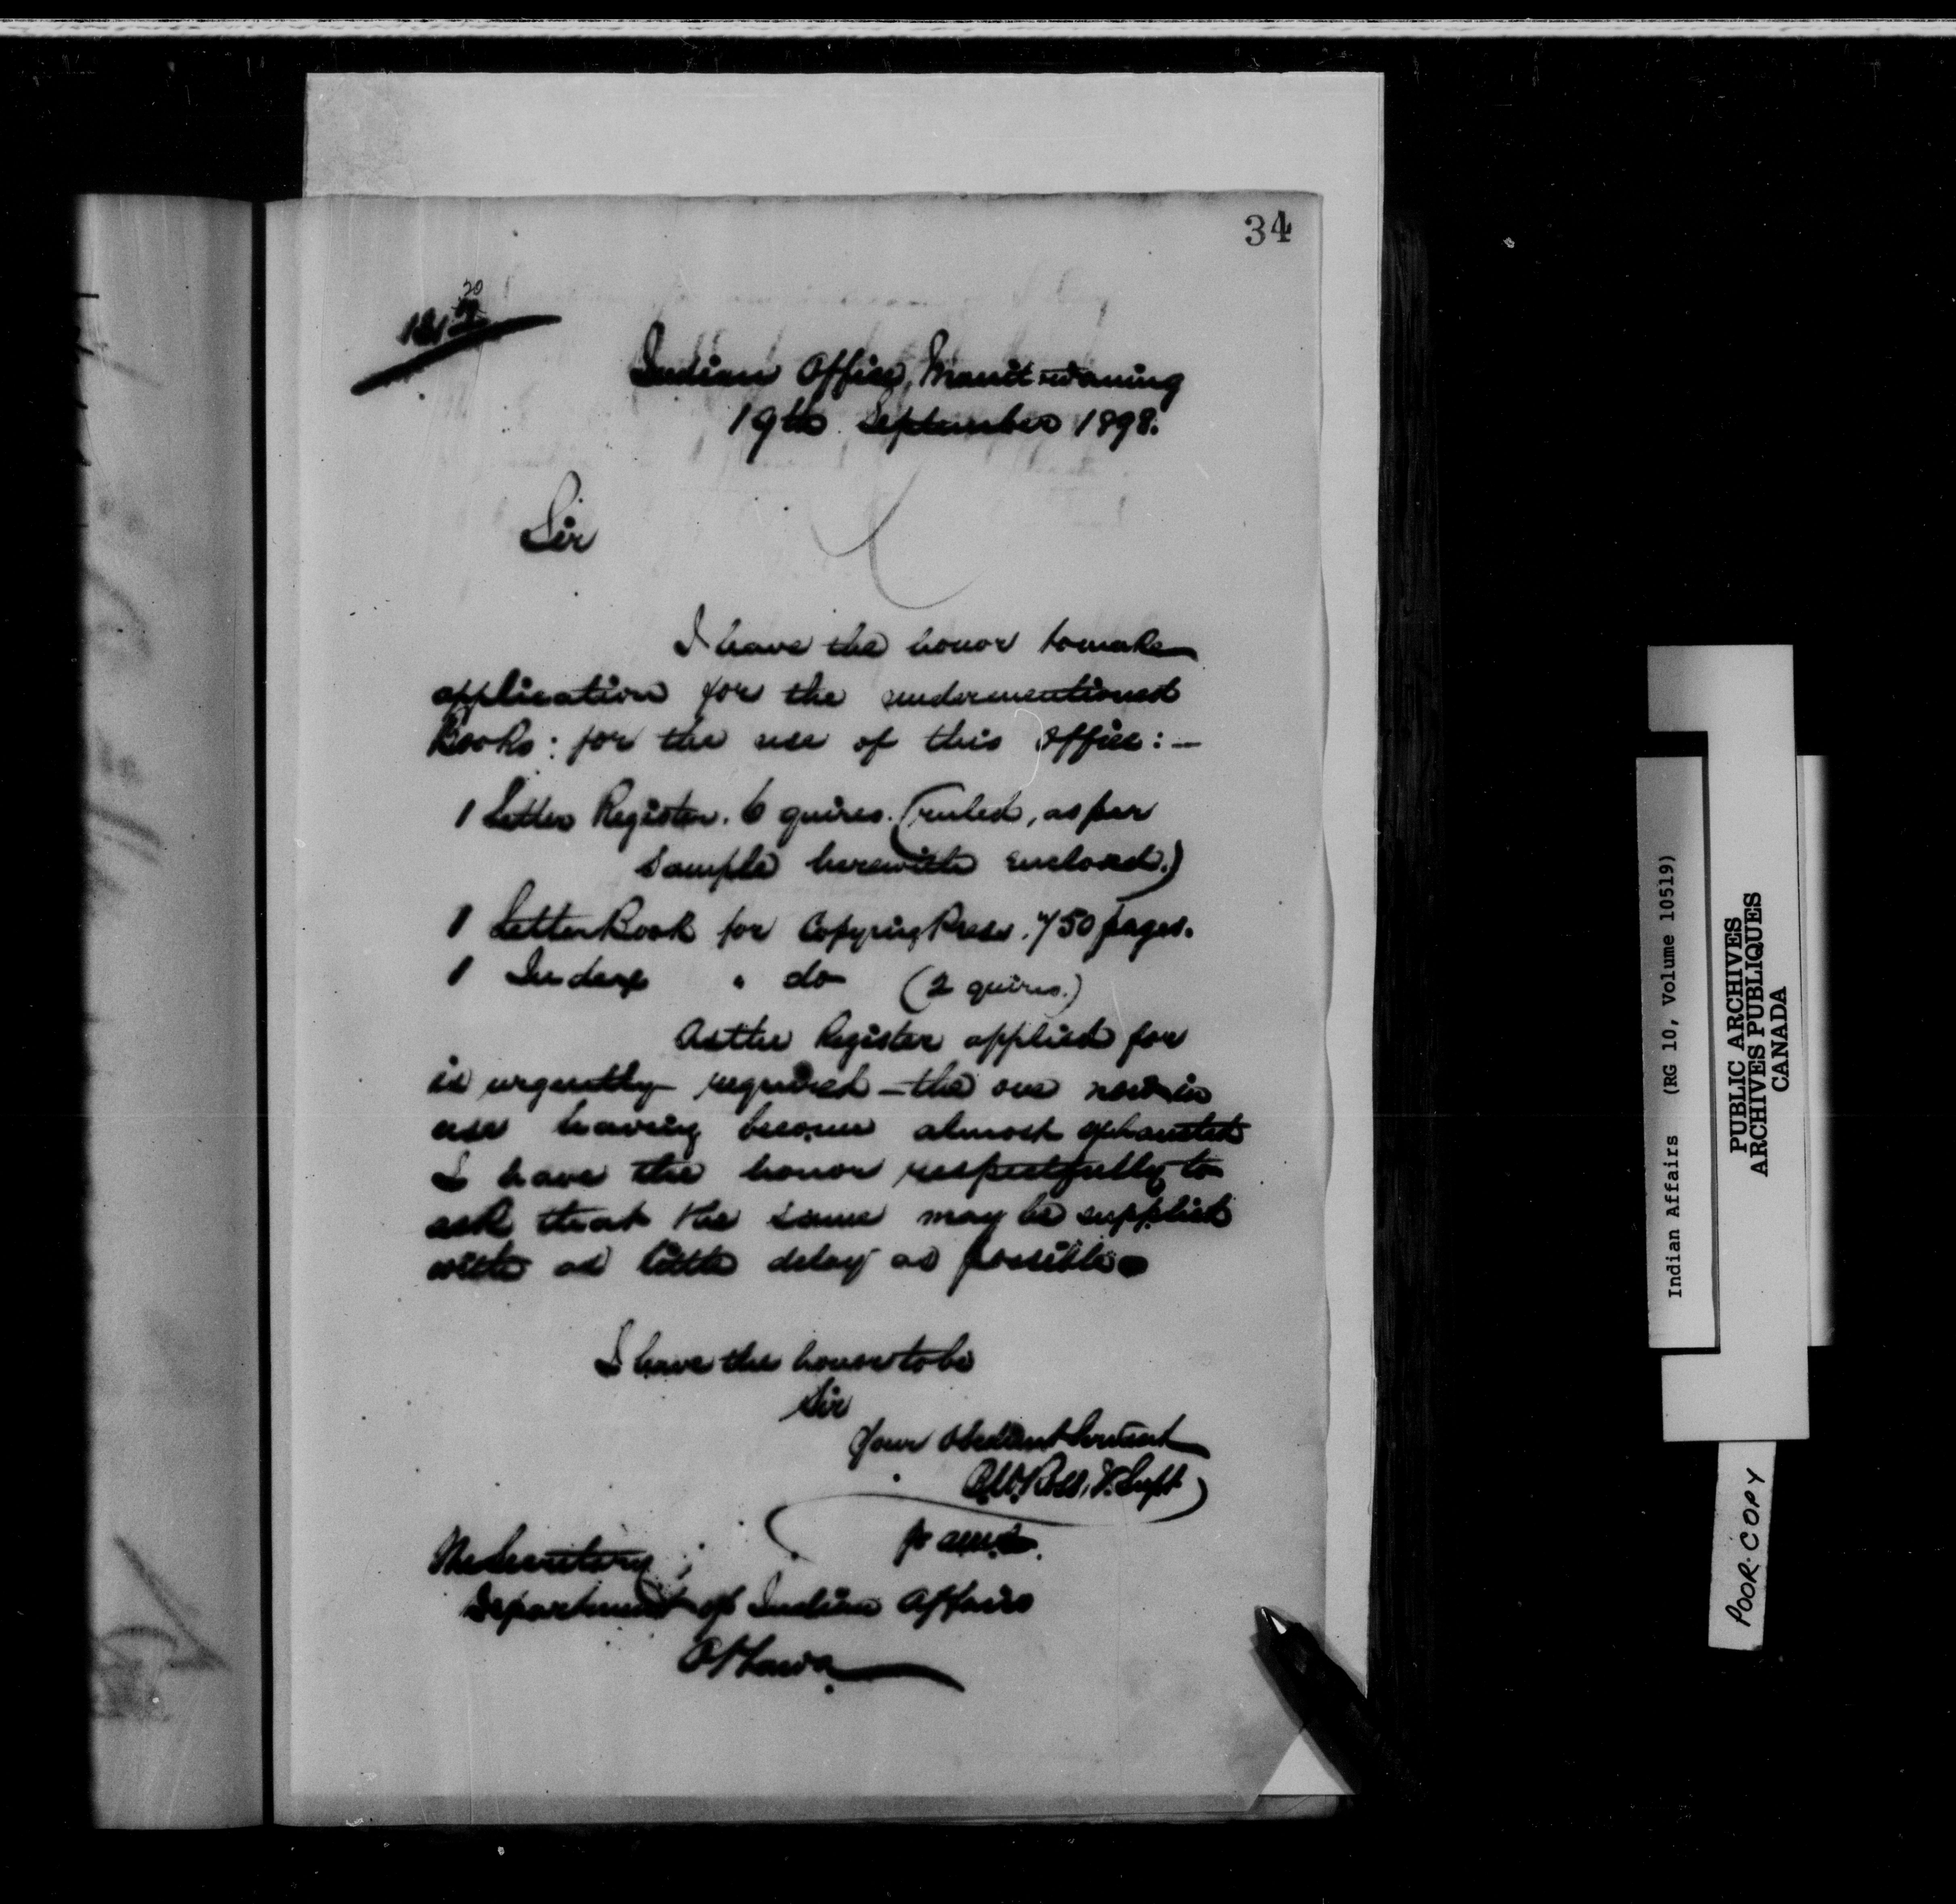 34
Indian Office, Manitowaning
19th September 1898.
Sir
I have the honor to make
application for the undermentioned
Books: for the use of this Office:—
1 Letter Register. 6 quires. (ruled, as per
sample herewith enclosed.)
1 Letter Book for Copying Press. 750 pages.
1 Index " do (2 quires.)
As the Register applied for
is urgently required — the one now in
use having become almost exhausted
I have the honor respectfully to
ask that the same may be supplied
with as little delay as possible
I have the honor to be
Sir
Your Obedient Servant
B.W. Ross, V. Supt
The Secretary
Department of Indian Affairs
Ottawa
Indian Affairs (RG 10, Volume 10519)
PUBLIC ARCHIVES
ARCHIVES PUBLIQUES
CANADA
POOR COPY